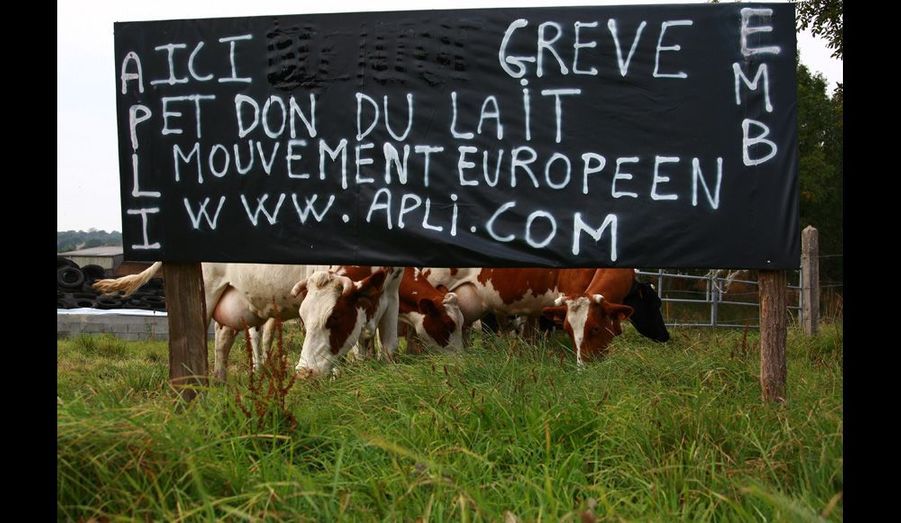 APLI
ICI GREVE
ET DON DU LAiT
MOUVEMENT EUROPEEN
WWW.APLi.COM
EMB